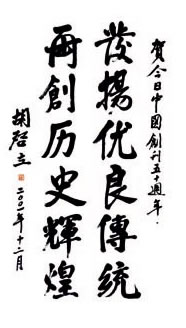 賀今日中國創刊五十週年.
發揚优良傳統
再創历史輝煌
胡启立
二〇〇一年十二月